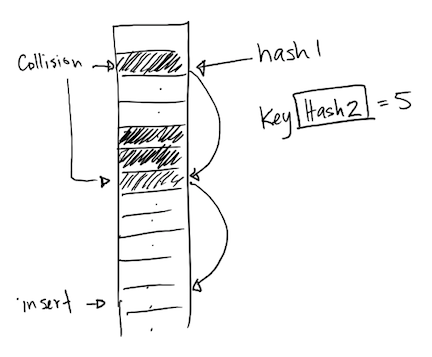 Collision
hash1
Key Hash2 = 5
insert